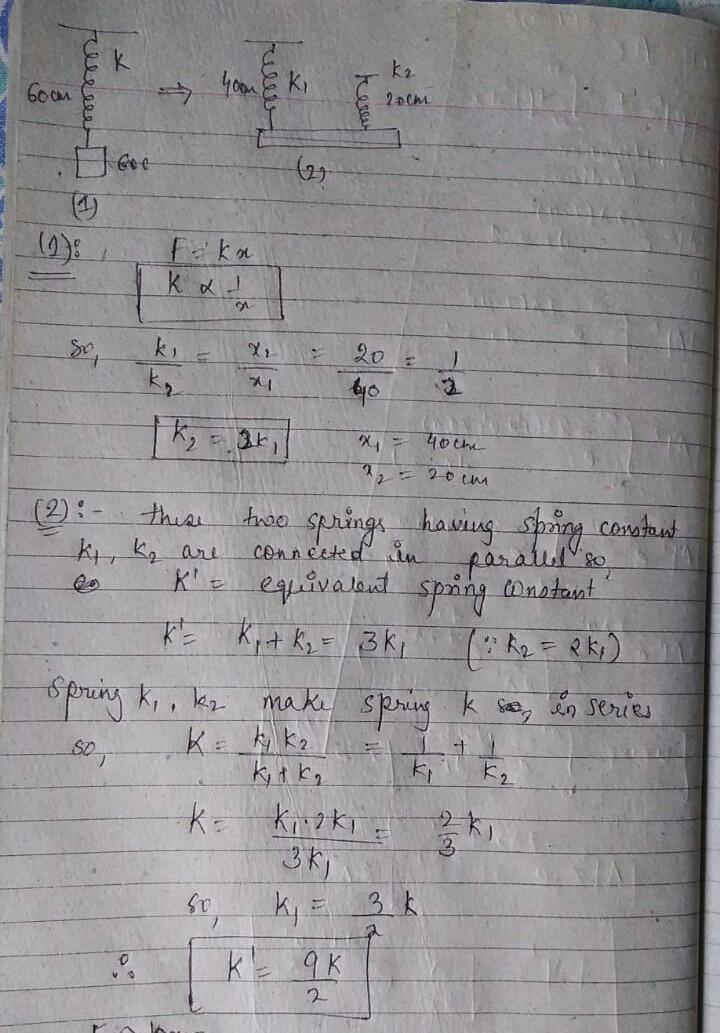 K
60cm
⇒
40cm
K₁
K₂
20cm
(1)
(2)
(1):
F = Kx
K ∝ 1/x
so, k₁/k₂ = x₂/x₁ = 20/40 = 1/2
K₂ = 2K₁
x₁ = 40cm
x₂ = 20cm
(2):- these two springs having spring constant
K₁, K₂ are connected in parallel so,
K' = equivalent spring constant
K' = K₁ + K₂ = 3K₁ (∵ K₂ = 2K₁)
spring K₁, K₂ make spring K in series
so, K = k₁ K₂/(K₁ + K₂) = 1/K₁ + 1/K₂
K = K₁·2K₁/3K₁ = 2/3 K₁
so, K₁ = 3/2 K
∴ K' = 9K/2